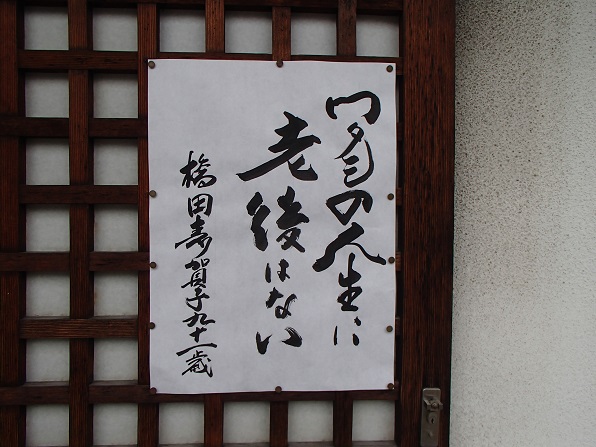 ワタシの人生に
老後はない
橋田壽賀子九十一歳